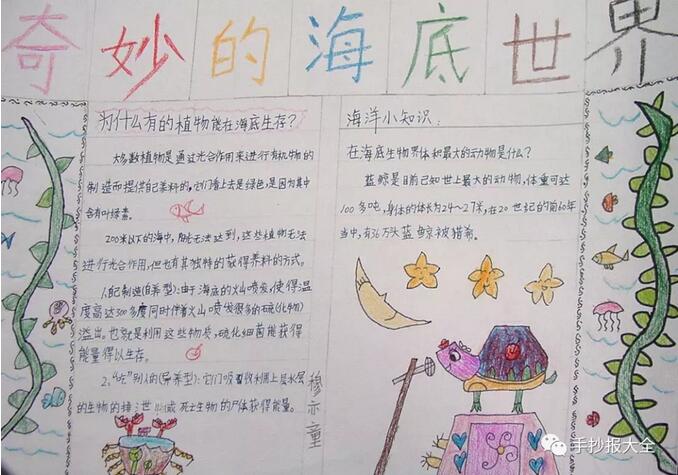 奇妙的海底世界
为什么有的植物能在海底生存?
大多数植物是通过光合作用来进行有机物的
制造而提供自己养料的,它们看上去是绿色,是因为其中
含有叶绿素。
200米以下的海中,阳光无法达到,这些植物无法
进行光合作用,但也有其独特的获得养料的方式。
1、配制造(自养型):由于海底的火山喷发,使得温
度高达300多摩同时伴着火山喷发很多的硫(化物)
溢出。也就是利用这些物质,硫化细菌能获得
能量得以生存。
2、"吃"别人的(异养型):它们吸着仪利用上层水层
的生物的排泄 或死亡生物的尸体获得能量。
穆亦童
海洋小知识:
在海底生物界体积最大的动物是什么?
蓝鲸是目前已知世上最大的动物,体重可达
100多吨,身体的体长为24～27米,在20世纪的前60年
当中,有36万头蓝鲸被猎杀。
手抄报大全